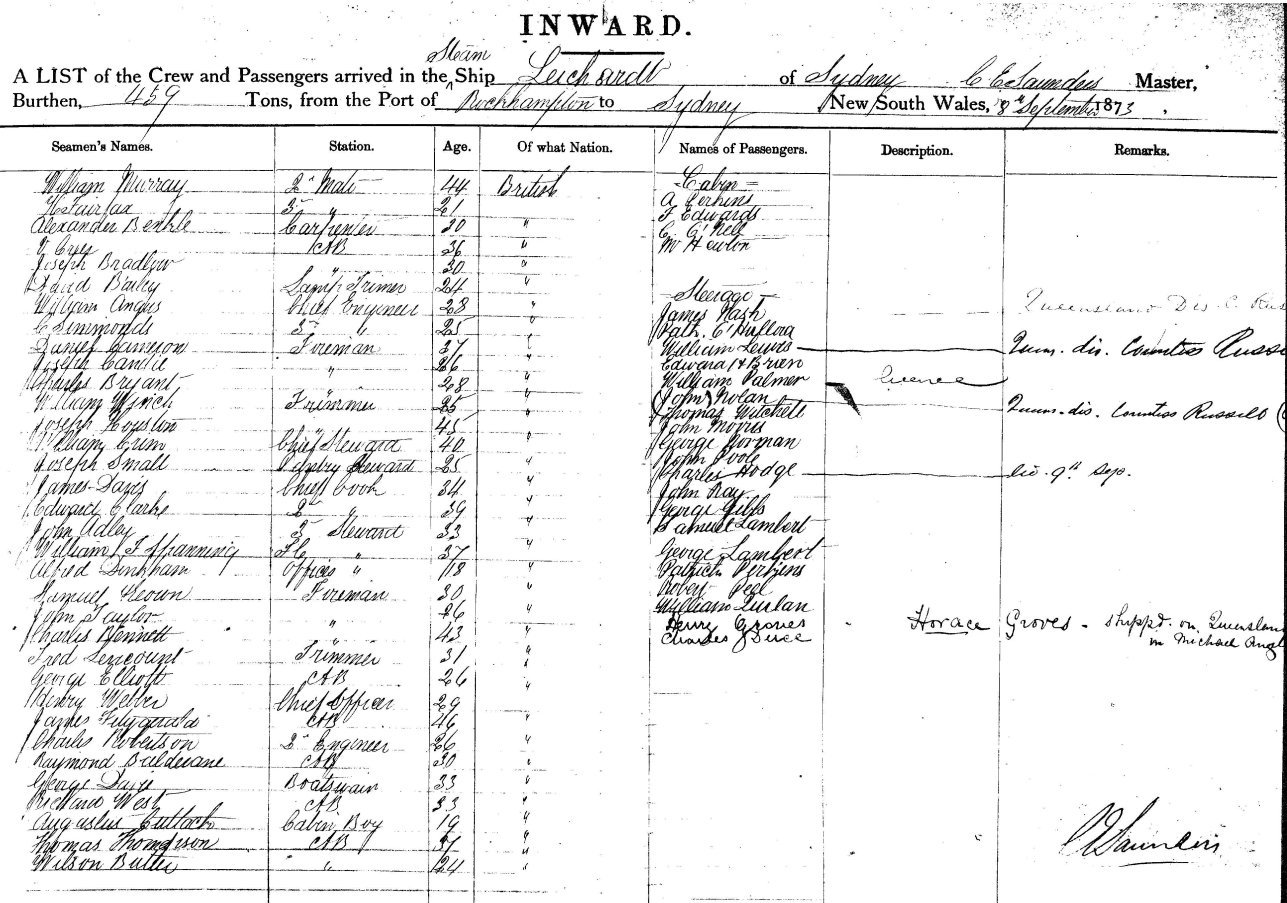 INWARD.
Steam
A LIST of the Crew and Passengers arrived in the Ship Leichardt of Sydney C E Saunders Master,
Burthen, 459 Tons, from the Port of Rockhampton to Sydney New South Wales, 8th September 1873,
Seamen's Names. Station. Age. Of what Nation. Names of Passengers. Description. Remarks.
William Murray 2nd Mate 44 British Cabin
H Fairfax 3rd " 21 " A Perkins
Alexander Carpenter 30 " F Edwards
AB 36 " C O'Neil
Joseph Bradlow " 30 "
David Bailey Lamp Trimer 24 " Steerage
William Angus Chief Engineer 28 " James Nash Queensland Dis. C. Rus
C Simmonds 3rd " 25 " Path.
Daniel Cameron Fireman 37 " William Lewis Queens. dis. Countess Russe
Joseph " 26 " Edward
Charles Bryant " 28 " William Palmer
William Trimmer 25 " John Nolan Queens. dis. Countess Russell
Joseph Houston " 45 " Thomas Mitchell
William Crim Chief Steward 40 " John Morris
Joseph Small Pantry Steward 25 " George Gorman
James Davis Chief Cook 34 " John Poole
Edward Clarke 2nd " 39 " Charles Hodge dis. 9th Sep.
John Adley 3rd Steward 33 " John Ray
William 37 " George Gibbs
Alfred Dinkham Offices " 18 " Samuel Lambert
Samuel Keown Fireman 30 " George Lambert
John Taylor " 26 " Patrick Perkins
Charles Bennett " 43 " Robert Peel
Fred Sencount Trimmer 31 " William
George Elliott AB 26 " Henry Groves Horace Groves - shippd. on Queenslan
Henry Webber Chief Officer 29 " Charles in Michael Angl
James Fitzgerald AB 46 "
Charles Robertson 2nd Engineer 26 "
Raymond AB 30 "
George Davis Boatswain 33 "
Richard West AB 33 "
Augustus Cabin Boy 19 "
Thomas Thompson AB 31 "
Wilson Butler " 24 "
C E Saunders